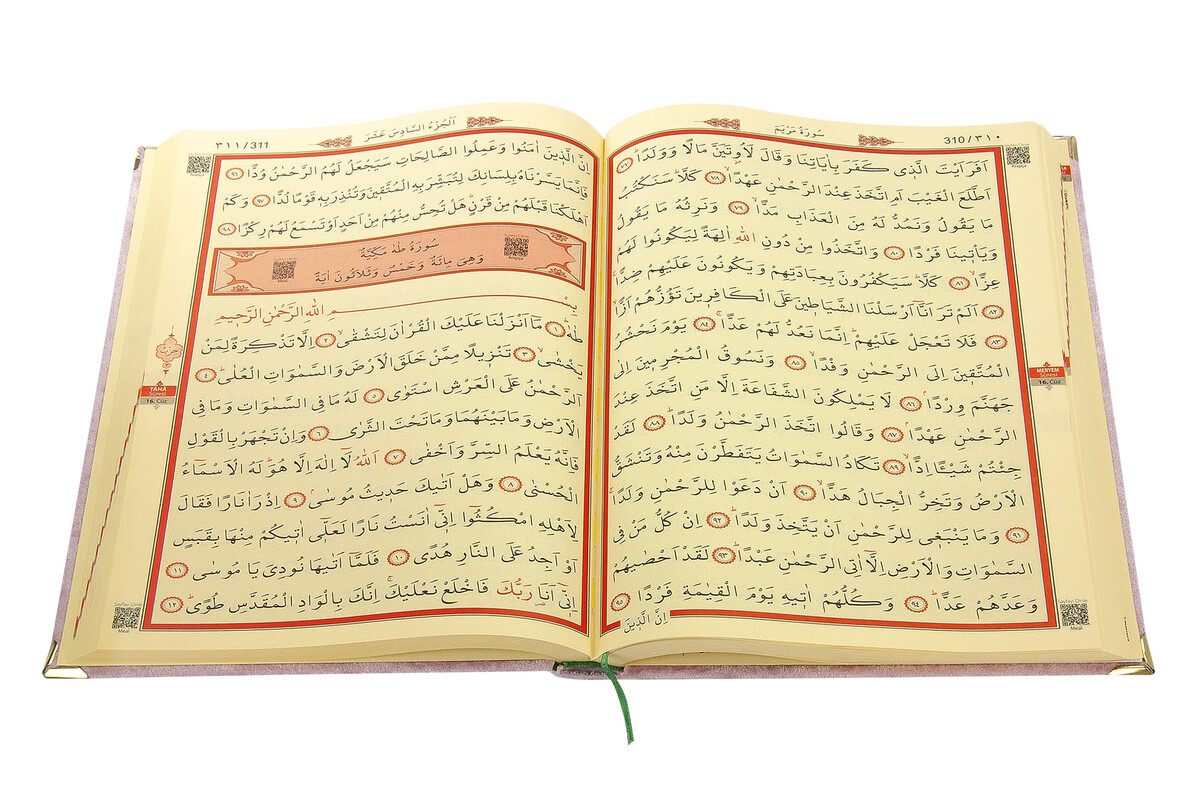 310/٣١٠
سُورَةُ مَرْيَمَ
Arapça
اَفَرَاَيْتَ الَّذ۪ي كَفَرَ بِاٰيَاتِنَا وَقَالَ لَاُو۫تَيَنَّ مَالًا وَوَلَدًاۜ ﴿٧٧﴾
اَطَّلَعَ الْغَيْبَ اَمِ اتَّخَذَ عِنْدَ الرَّحْمٰنِ عَهْدًاۙ ﴿٧٨﴾ كَلَّاۜ سَنَكْتُبُ
مَا يَقُولُ وَنَمُدُّ لَهُ مِنَ الْعَذَابِ مَدًّاۙ ﴿٧٩﴾ وَنَرِثُهُ مَا يَقُولُ
وَيَأْت۪ينَا فَرْدًا ﴿٨٠﴾ وَاتَّخَذُوا مِنْ دُونِ اللّٰهِ اٰلِهَةً لِيَكُونُوا لَهُمْ
عِزًّاۙ ﴿٨١﴾ كَلَّاۜ سَيَكْفُرُونَ بِعِبَادَتِهِمْ وَيَكُونُونَ عَلَيْهِمْ ضِدًّا۟
﴿٨٢﴾ اَلَمْ تَرَ اَنَّٓا اَرْسَلْنَا الشَّيَاط۪ينَ عَلَى الْكَافِر۪ينَ تَؤُزُّهُمْ اَزًّاۙ
﴿٨٣﴾ فَلَا تَعْجَلْ عَلَيْهِمْۜ اِنَّمَا نَعُدُّ لَهُمْ عَدًّاۚ ﴿٨٤﴾ يَوْمَ نَحْشُرُ
الْمُتَّق۪ينَ اِلَى الرَّحْمٰنِ وَفْدًاۙ ﴿٨٥﴾ وَنَسُوقُ الْمُجْرِم۪ينَ اِلٰى
جَهَنَّمَ وِرْدًاۢ ﴿٨٦﴾ لَا يَمْلِكُونَ الشَّفَاعَةَ اِلَّا مَنِ اتَّخَذَ عِنْدَ
الرَّحْمٰنِ عَهْدًاۢ ﴿٨٧﴾ وَقَالُوا اتَّخَذَ الرَّحْمٰنُ وَلَدًاۜ ﴿٨٨﴾ لَقَدْ
جِئْتُمْ شَيْـًٔا اِدًّاۙ ﴿٨٩﴾ تَكَادُ السَّمٰوَاتُ يَتَفَطَّرْنَ مِنْهُ وَتَنْشَقُّ
الْاَرْضُ وَتَخِرُّ الْجِبَالُ هَدًّاۙ ﴿٩٠﴾ اَنْ دَعَوْا لِلرَّحْمٰنِ وَلَدًاۚ
﴿٩١﴾ وَمَا يَنْبَغ۪ي لِلرَّحْمٰنِ اَنْ يَتَّخِذَ وَلَدًاۜ ﴿٩٢﴾ اِنْ كُلُّ مَنْ فِي
السَّمٰوَاتِ وَالْاَرْضِ اِلَّٓا اٰتِي الرَّحْمٰنِ عَبْدًاۜ ﴿٩٣﴾ لَقَدْ اَحْصٰيهُمْ
وَعَدَّهُمْ عَدًّاۜ ﴿٩٤﴾ وَكُلُّهُمْ اٰت۪يهِ يَوْمَ الْقِيٰمَةِ فَرْدًا ﴿٩٥﴾
اِنَّ الَّذ۪ينَ
MERYEM
Sûresi
16. Cüz
Sayfayı Dinle
Meal
٣١١/311
اَلْجُزْءُ السَّادِسَ عَشَرَ
Arapça
اِنَّ الَّذ۪ينَ اٰمَنُوا وَعَمِلُوا الصَّالِحَاتِ سَيَجْعَلُ لَهُمُ الرَّحْمٰنُ وُدًّا ﴿٩٦﴾
فَاِنَّمَا يَسَّرْنَاهُ بِلِسَانِكَ لِتُبَشِّرَ بِهِ الْمُتَّق۪ينَ وَتُنْذِرَ بِه۪ قَوْمًا لُدًّا ﴿٩٧﴾ وَكَمْ
اَهْلَكْنَا قَبْلَهُمْ مِنْ قَرْنٍۜ هَلْ تُحِسُّ مِنْهُمْ مِنْ اَحَدٍ اَوْ تَسْمَعُ لَهُمْ رِكْزًا ﴿٩٨﴾
سُورَةُ طٰهٰ مَكِّيَّةٌ
وَهِيَ مِائَةٌ وَخَمْسٌ وَثَلَاثُونَ اٰيَةً
Arapça
Meal
بِسْمِ اللّٰهِ الرَّحْمٰنِ الرَّح۪يمِ
طٰهٰۜ ﴿١﴾ مَٓا اَنْزَلْنَا عَلَيْكَ الْقُرْاٰنَ لِتَشْقٰىۙ ﴿٢﴾ اِلَّا تَذْكِرَةً لِمَنْ
يَخْشٰىۙ ﴿٣﴾ تَنْز۪يلًا مِمَّنْ خَلَقَ الْاَرْضَ وَالسَّمٰوَاتِ الْعُلٰىۜ ﴿٤﴾
اَلرَّحْمٰنُ عَلَى الْعَرْشِ اسْتَوٰى ﴿٥﴾ لَهُ مَا فِي السَّمٰوَاتِ وَمَا فِي
الْاَرْضِ وَمَا بَيْنَهُمَا وَمَا تَحْتَ الثَّرٰى ﴿٦﴾ وَاِنْ تَجْهَرْ بِالْقَوْلِ
فَاِنَّهُ يَعْلَمُ السِّرَّ وَاَخْفٰى ﴿٧﴾ اَللّٰهُ لَٓا اِلٰهَ اِلَّا هُوَۜ لَهُ الْاَسْمَٓاءُ
الْحُسْنٰى ﴿٨﴾ وَهَلْ اَتٰيكَ حَد۪يثُ مُوسٰىۢ ﴿٩﴾ اِذْ رَاٰ نَارًا فَقَالَ
لِاَهْلِهِ امْكُثُٓوا اِنّ۪ٓي اٰنَسْتُ نَارًا لَعَلّ۪ٓي اٰت۪يكُمْ مِنْهَا بِقَبَسٍ
اَوْ اَجِدُ عَلَى النَّارِ هُدًى ﴿١٠﴾ فَلَمَّٓا اَتٰيهَا نُودِيَ يَا مُوسٰى ﴿١١﴾
اِنّ۪ٓي اَنَا۬ رَبُّكَ فَاخْلَعْ نَعْلَيْكَۚ اِنَّكَ بِالْوَادِ الْمُقَدَّسِ طُوًىۜ ﴿١٢﴾
حزب
TÂHÂ
Sûresi
16. Cüz
Sayfayı Dinle
Meal